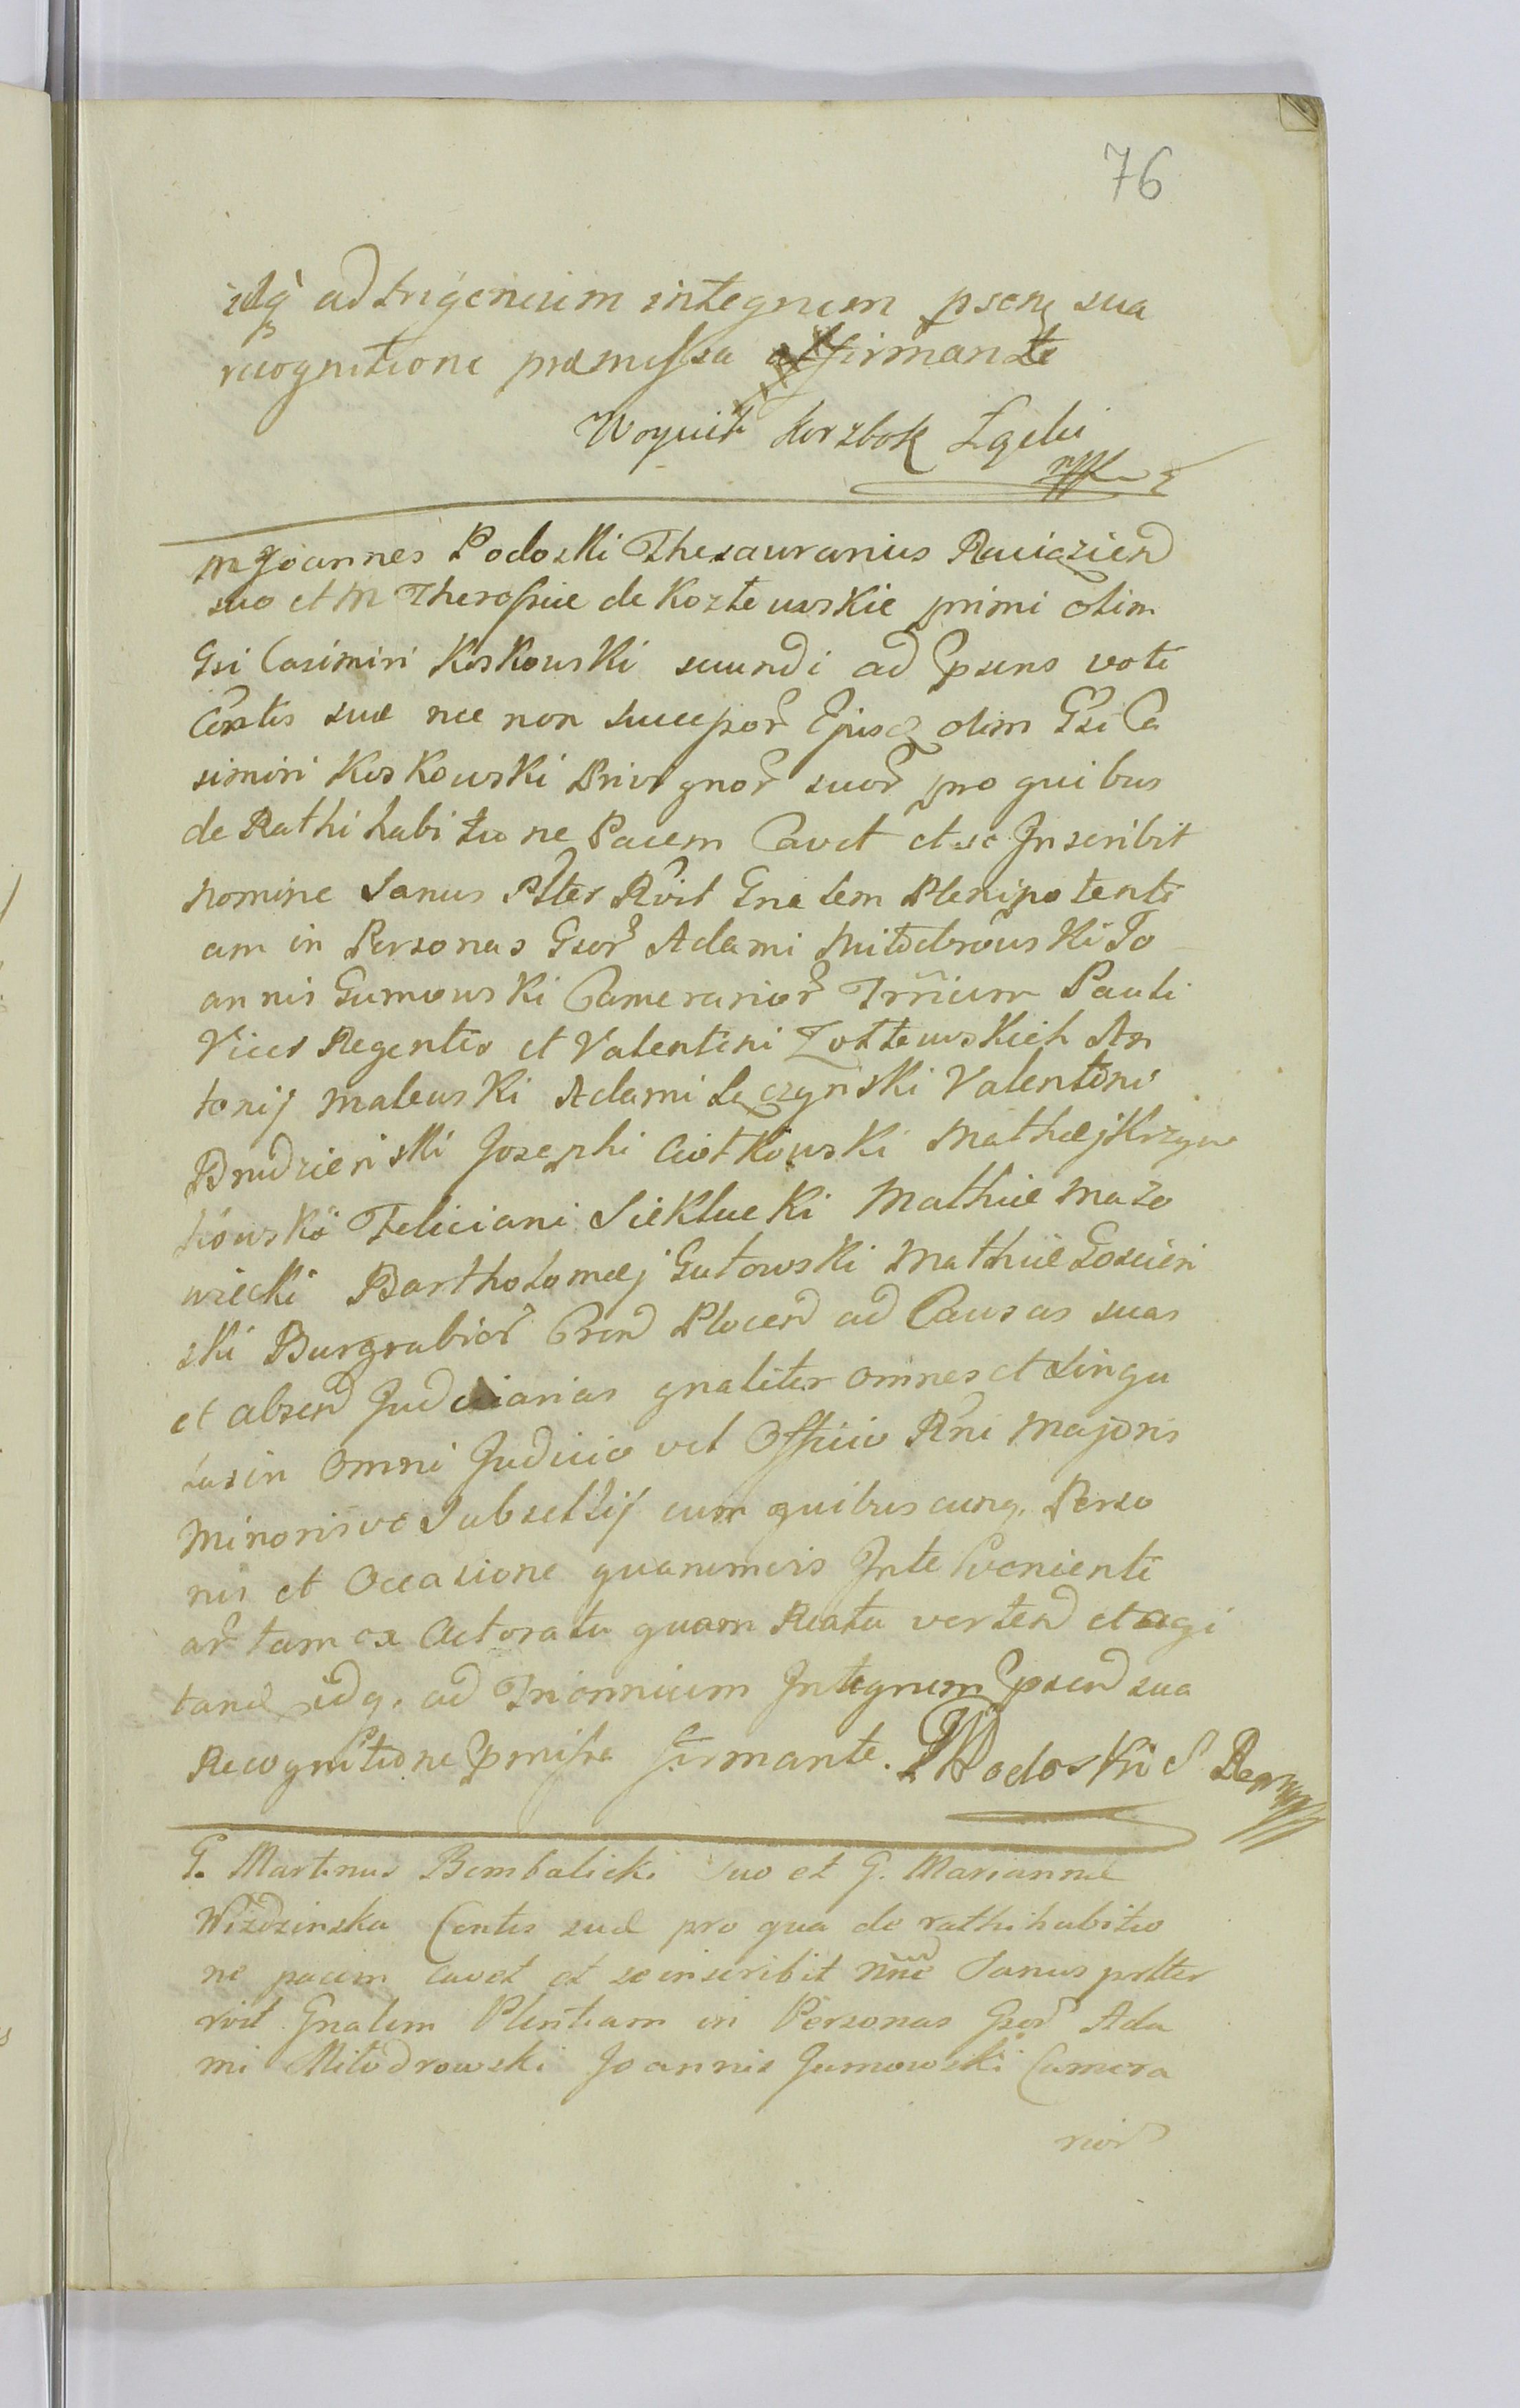 76
idq ad trigenium integrum psenq sua
recognitione præmissa affirmante
Woyciech Korzbok Łącki
mpp
M Joannes Podoski Thesaurarius Raviczien
suo et M Theressiæ de Kozłewskie primi olim
Gsi Casimiri Koskowski secundi ad psens voti
Contis suæ nec non Successor Ejusq olim Gsi Ca
simiri Koskowski Privignor suor pro quibus
de Rathihabitione Pacem Cavet et se Inscribit
Nomine Sanus Plter Rvit Gnalem Plenipotenti
am in Personas Gsor Adami Miłodrowski Jo
annis Gumowski Camerarior Trrium Pauli
Vices Regentis et Valentini Zołtowskich An
tonij Malewski Adami Łączynski Valentini
Brudzienski Josephi Ciołkowski Mathæj Krzyw
kowski Feliciani Sieklucki Mathiæ Mazo
wiecki Bartholomæj Gutowski Mathiæ Goscien
ski Burgrabior Cren Plocen ad Causas suas
et absen Judiciarias gnaliter omnes et Singu
las in Omni Judicio vel Officio Rni Majoris
Minorisve Subsellij cum quibuscunq. Perso
nis et Occasione quarumvis Inte Venienti
ar tam ex Actoratu quam Reatu verten et agi
tand idq. ad Triennium Integrum psend sua
Recognitione pmissa firmante. JPodoski S R mpp
G. Martinus Bembalicki suo et G. Mariannæ
Wizdzinska Contis suæ pro qua de rathihabitio
ne pacem cavet et se inscribit nne Sanus pltter
rvit Gnalem Plentiam in Personas Gsor Ada
mi Miłodrowski Joannis Gumowski Camera
rior